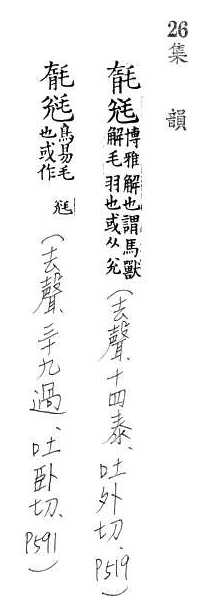 26
集韻
毻毤博雅解也謂鳥獸解毛羽也或从兌(去聲、十四泰、吐外切、P519)
毻毤鳥易毛也或作毤(去聲、三十九過、吐臥切、P591)